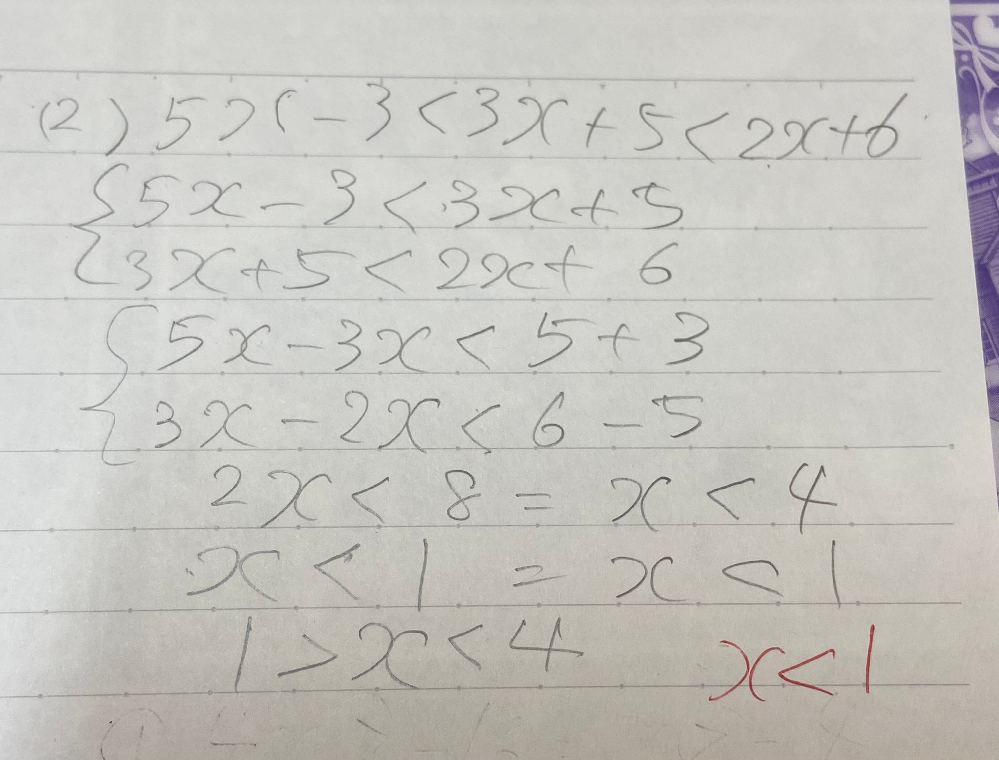 (2) 5x - 3 < 3x + 5 < 2x + 6
{ 5x - 3 < 3x + 5
3x + 5 < 2x + 6
{ 5x - 3x < 5 + 3
3x - 2x < 6 - 5
2x < 8 = x < 4
x < 1 = x < 1
1 > x < 4 x < 1